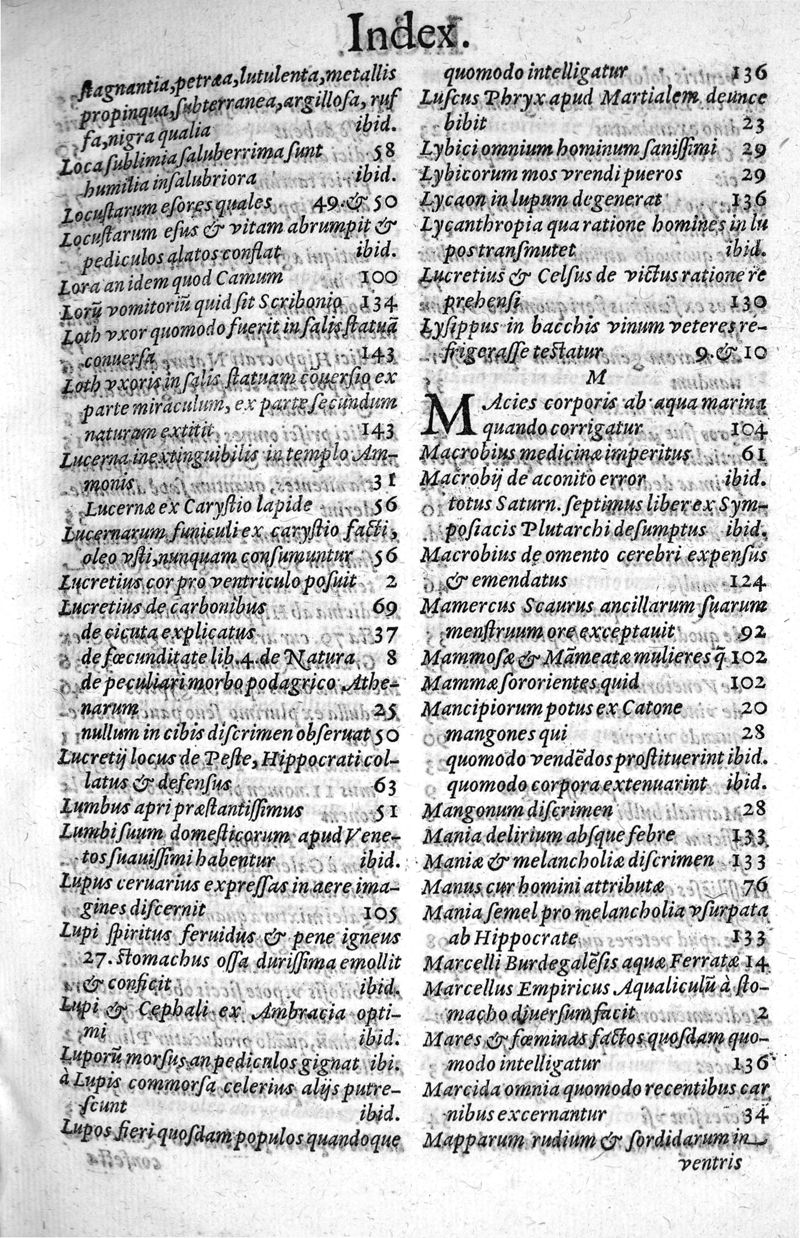 Index.
ſtagnantia, petræa, lutulenta, metallis
propinqua, ſubterranea, argilloſa, ruf
fa, nigra qualia ibid.
Loca ſublimia ſaluberrima ſunt 58
humilia inſalubriora ibid.
Locuſtarum eſores quales 49. & 50
Locuſtarum eſus & vitam abrumpit &
pediculos alatos conflat ibid.
Lora an idem quod Camum 100
Lorũ vomitoriũ quid ſit Scribonio 134
Loth vxor quomodo fuerit in ſalis ſtatuã
conuerſa 143
Loth vxoris in ſalis ſtatuam cõuerſio ex
parte miraculum, ex parte ſecundum
naturam extitit 143
Lucerna inextinguibilis in templo Am-
monis 31
Lucernæ ex Caryſtio lapide 56
Lucernarum funiculi ex caryſtio facti,
oleo vſti, nunquam conſumuntur 56
Lucretius cor pro ventriculo poſuit 2
Lucretius de carbonibus 69
de cicuta explicatus 37
de fœcunditate lib. 4. de Natura 8
de peculiari morbo podagrico Athe-
narum 25
nullum in cibis diſcrimen obſeruat 50
Lucretij locus de Peſte, Hippocrati col-
latus & defenſus 63
Lumbus apri præſtantiſſimus 51
Lumbi ſuum domeſticorum apud Vene-
tos ſuauiſſimi habentur ibid.
Lupus ceruarius expreſſas in aere ima-
gines diſcernit 105
Lupi ſpiritus feruidus & pene igneus
27. ſtomachus oſſa duriſſima emollit
& conficit ibid.
Lupi & Cephali ex Ambracia opti-
mi ibid.
Luporũ morſus an pediculos gignat ibi.
à Lupis commorſa celerius alijs putre-
ſcunt ibid.
Lupos fieri quoſdam populos quandoque
quomodo intelligatur 136
Luſcus Phryx apud Martialem deunce
bibit 23
Lybici omnium hominum ſaniſſimi 29
Lybicorum mos vrendi pueros 29
Lycaon in lupum degenerat 136
Lycanthropia qua ratione homines in lu
pos tranſmutet ibid.
Lucretius & Celſus de victus ratione re
prehenſi 130
Lyſippus in bacchis vinum veteres re-
frigeraſſe teſtatur 9. & 10
M
MAcies corporis ab aqua marina
quando corrigatur 104
Macrobius medicinæ imperitus 61
Macrobij de aconito error ibid.
totus Saturn. ſeptimus liber ex Sym-
poſiacis Plutarchi deſumptus ibid.
Macrobius de omento cerebri expenſus
& emendatus 124
Mamercus Scaurus ancillarum ſuarum
menſtruum ore exceptauit 92
Mammoſæ & Mãmeatæ mulieres q̃ 102
Mammæ ſororientes quid 102
Mancipiorum potus ex Catone 20
mangones qui 28
quomodo vendẽdos proſtituerint ibid.
quomodo corpora extenuarint ibid.
Mangonum diſcrimen 28
Mania delirium abſque febre 133
Maniæ & melancholiæ diſcrimen 133
Manus cur homini attributæ 76
Mania ſemel pro melancholia vſurpata
ab Hippocrate 133
Marcelli Burdegalẽſis aquæ Ferratæ 14
Marcellus Empiricus Aqualiculũ à ſto-
macho diuerſum facit 2
Mares & fœminas factos quoſdam quo-
modo intelligatur 136
Marcida omnia quomodo recentibus car
nibus excernantur 34
Mapparum rudium & ſordidarum in
ventris